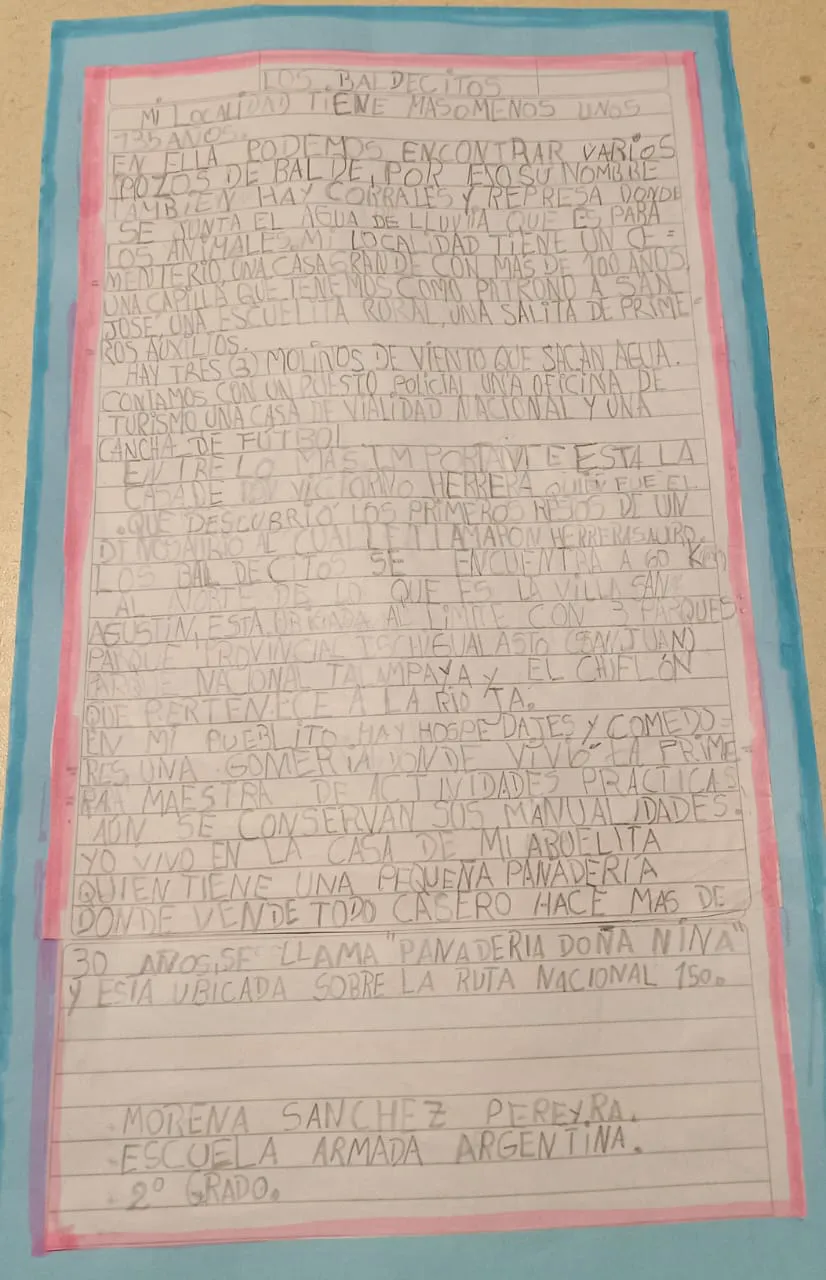 LOS BALDECITOS
MI LOCALIDAD TIENE MASOMENOS UNOS
135 AÑOS.
EN ELLA PODEMOS ENCONTRAR VARIOS
POZOS DE BALDE, POR ESO SU NOMBRE
TAMBIEN HAY CORRALES Y REPRESA DONDE
SE JUNTA EL AGUA DE LLUVIA QUE ES PARA
LOS ANIMALES. MI LOCALIDAD TIENE UN CE=
=MENTERIO, UNA CASA GRANDE CON MAS DE 100 AÑOS,
UNA CAPILLA QUE TENEMOS COMO PATRONO A SAN
JOSÉ, UNA ESCUELITA RURAL, UNA SALITA DE PRIME=
=ROS AUXILIOS.
HAY TRES (3) MOLINOS DE VIENTO QUE SACAN AGUA.
CONTAMOS CON UN PUESTO POLICIAL UNA OFICINA DE
TURISMO UNA CASA DE VIALIDAD NACIONAL Y UNA
CANCHA DE FUTBOL
ENTRE LO MAS IMPORTANTE ESTA LA
CASA DE DON VICTORINO HERRERA QUIÉN FUE EL
.QUE DESCUBRIÓ LOS PRIMEROS RESTOS DE UN
DINOSAURIO AL CUAL LE LLAMARON HERRERASAURO.
LOS BALDECITOS SE ENCUENTRA A 60 Km
AL NORTE DE LO QUE ES LA VILLA SAN
AGUSTIN, ESTA UBICADA AL LIMITE CON 3 PARQUES:
PARQUE PROVINCIAL ISCHIGUALASTO (SAN JUAN)
PARQUE NACIONAL TALAMPAYA Y EL CHIFLÓN
QUE PERTENECE A LA RIOJA.
EN MI PUEBLITO HAY HOSPEDAJES Y COMEDO=
=RES UNA GOMERIA DONDE VIVIÓ LA PRIME=
=RA MAESTRA DE ACTIVIDADES PRÁCTICAS
AÚN SE CONSERVAN SUS MANUALIDADES.
YO VIVO EN LA CASA DE MI ABUELITA
QUIEN TIENE UNA PEQUEÑA PANADERIA
DONDE VENDE TODO CASERO HACE MAS DE
30 AÑOS, SE LLAMA "PANADERIA DOÑA NINA"
Y ESTA UBICADA SOBRE LA RUTA NACIONAL 150.
.MORENA SANCHEZ PEREYRA.
-ESCUELA ARMADA ARGENTINA.
.2º GRADO.